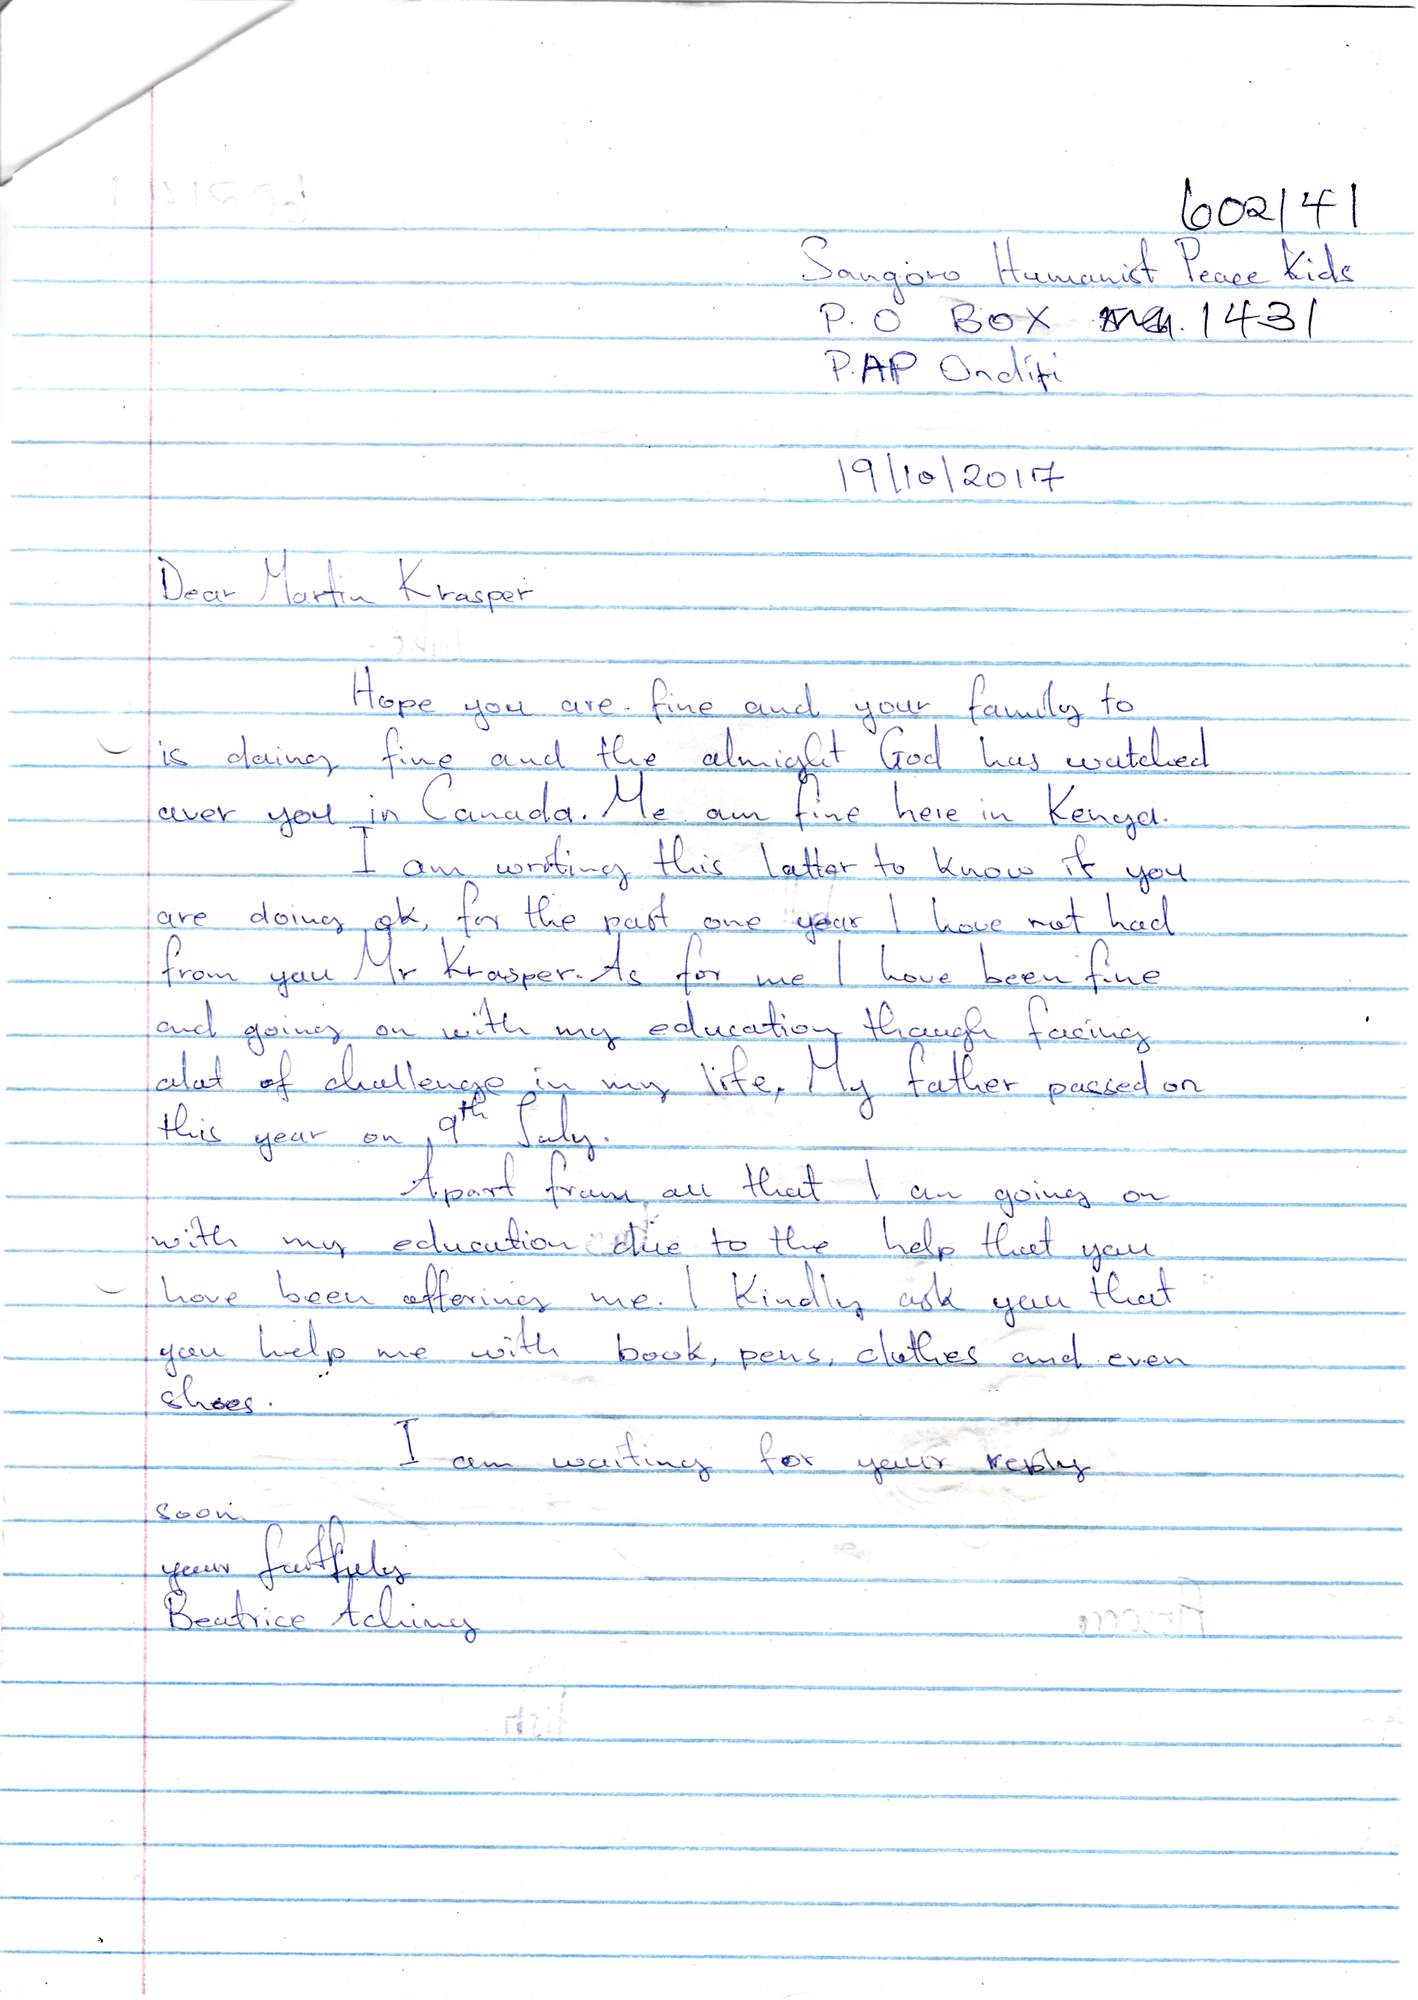 602/41
Sangoro Humanist Peace Kids
P.O BOX 1431
P.AP Onditi
19/10/2017
Dear Martin Krasper
Hope you are fine and your family to
is doing fine and the almight God has watched
over you in Canada. Me am fine here in Kenya.
I am writing this latter to know if you
are doing ok, for the past one year I have not had
from you Mr Krasper. As for me I have been fine
and going on with my education though facing
alot of challenge in my life, My father passed on
this year on 9th July.
Apart from all that I an going on
with my education due to the help that you
have been offering me. I Kindly ask you that
you help me with book, pens, clothes and even
shoes.
I am waiting for your reply
soon.
your faitfuly
Beatrice Aching